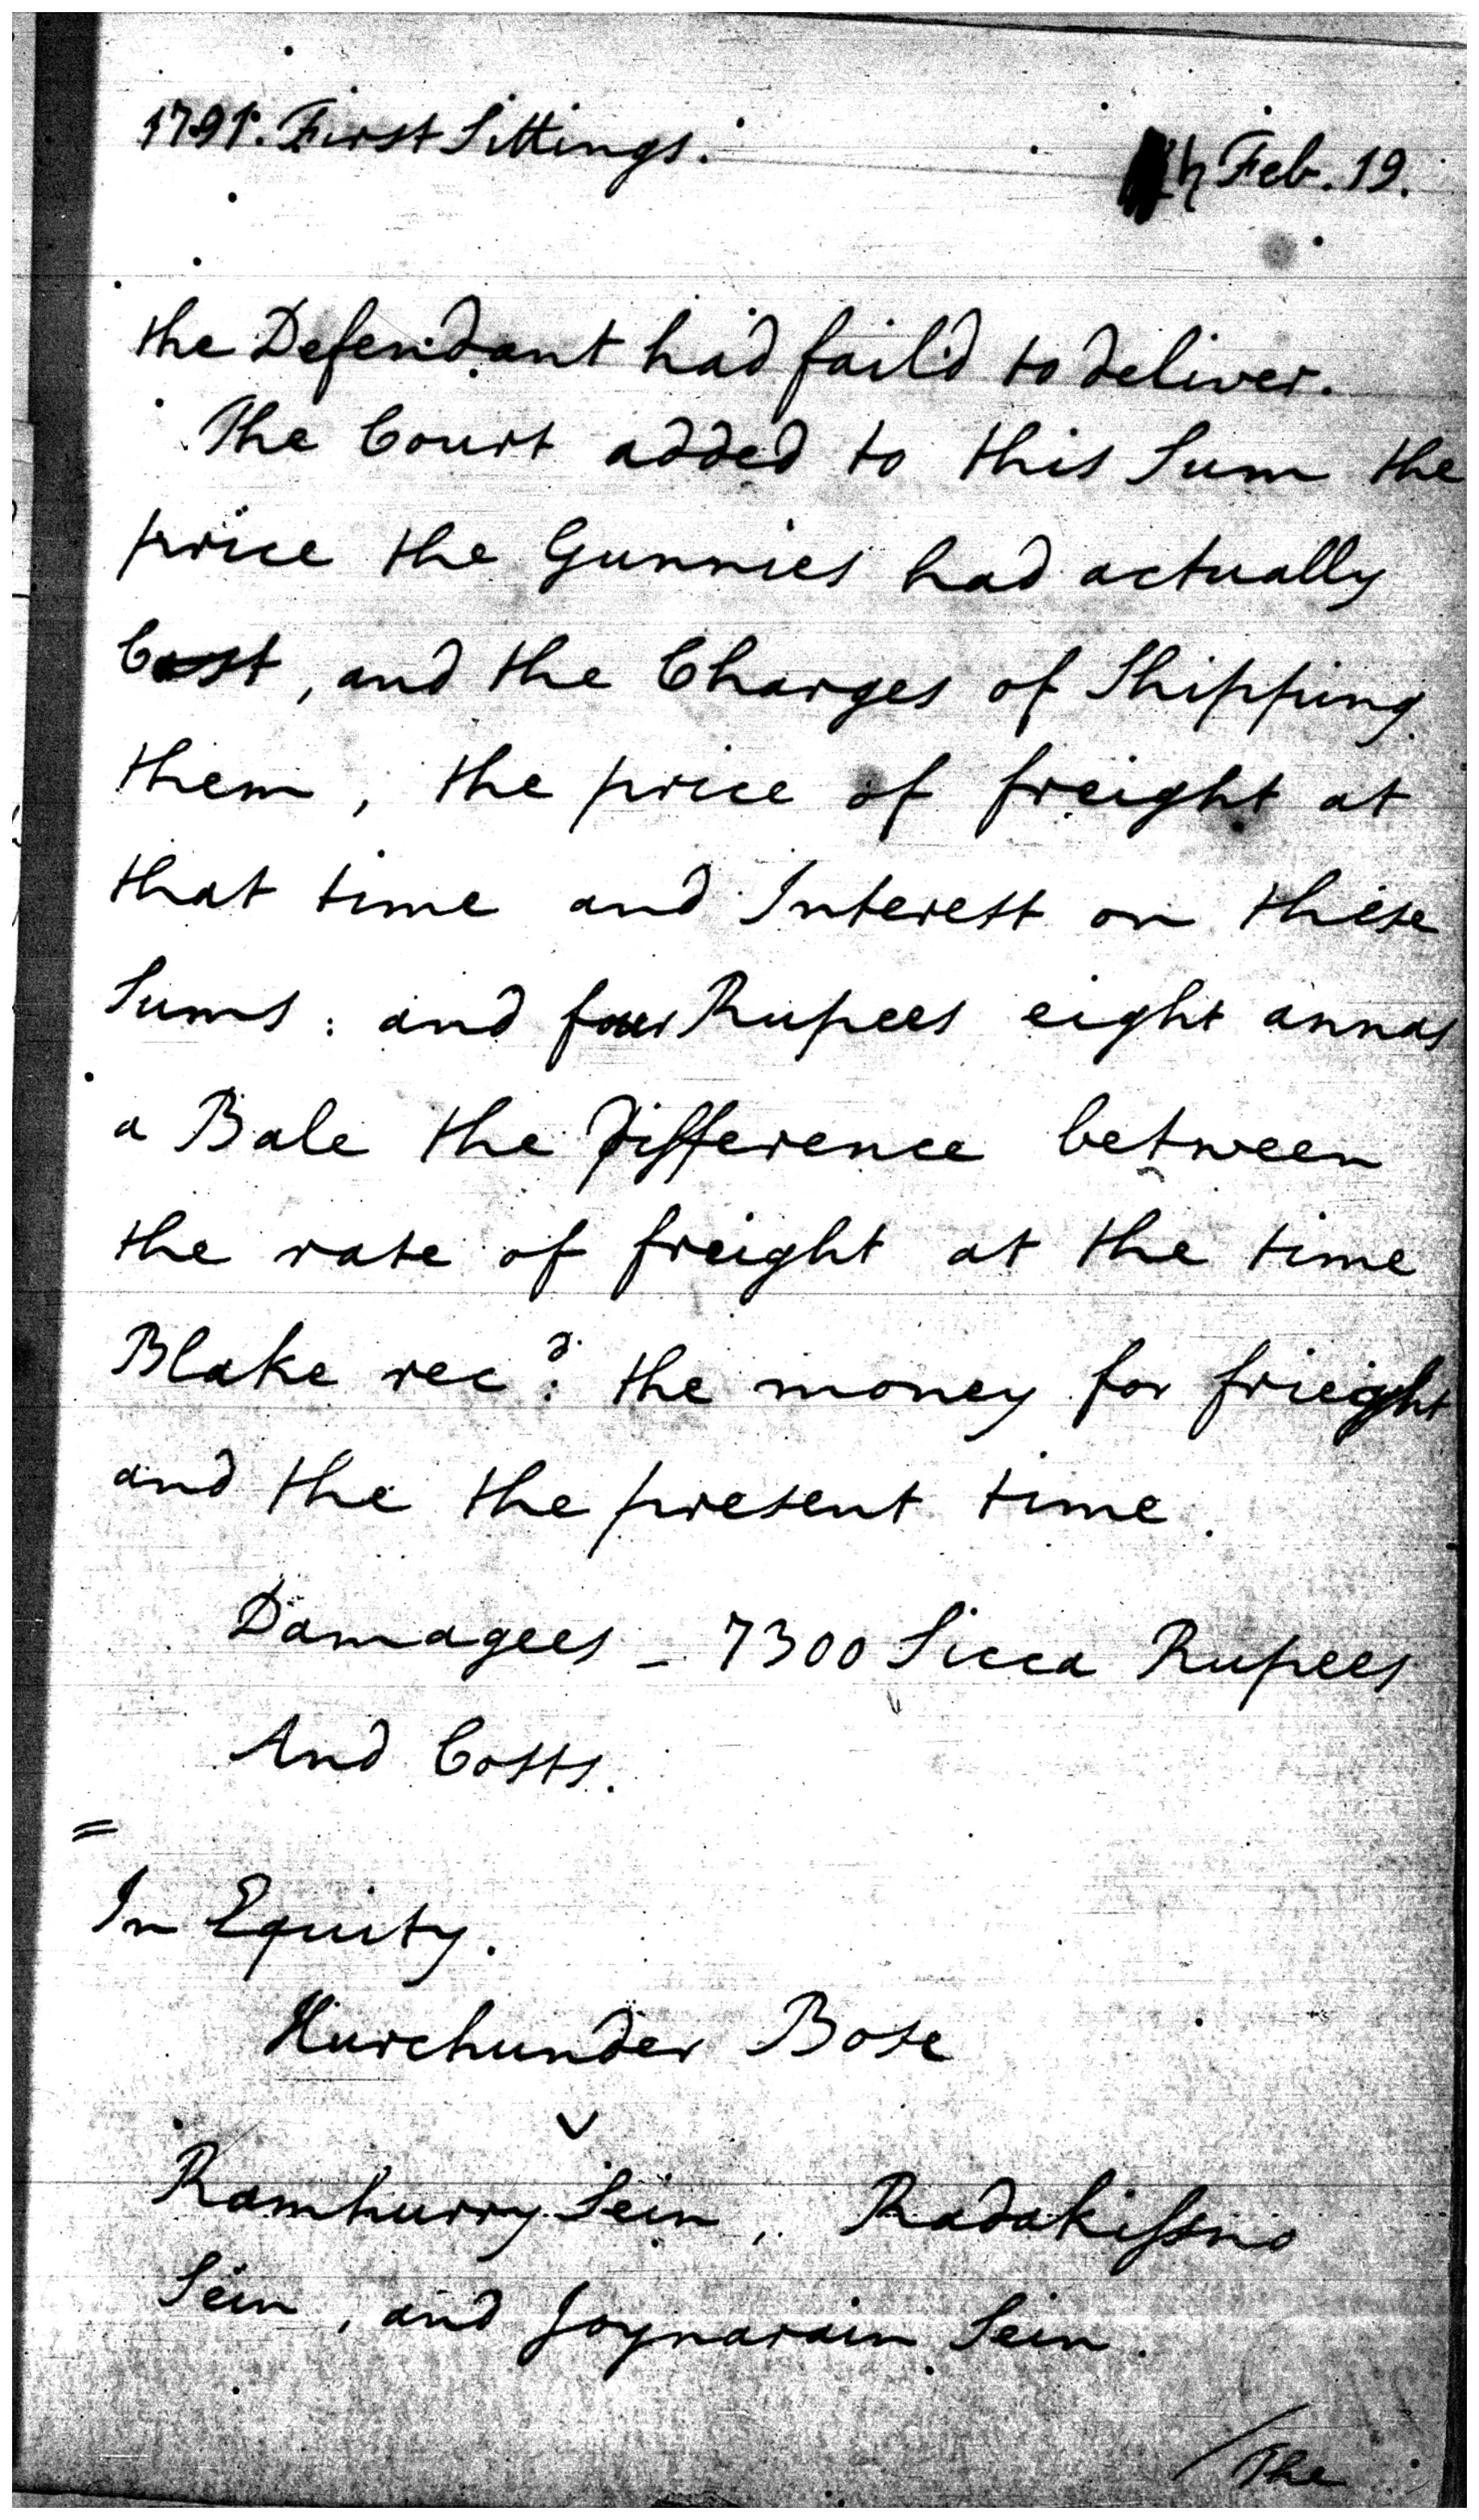 1791. First Sittings.
♄ Feb. 19.
the Defendant had fail'd to deliver.
The Court added to this Sum the
price the Gunnies had actually
Cost, and the Charges of Shipping
them, the price of freight at
that time and Interest on these
Sums: and four Rupees eight annas
a Bale the Difference between
the rate of freight at the time
Blake rec.d: the money for frieght
and the the present time.
Damagees - 7300 Sicca Rupees
And Costs.
=
In Equity.
Hurchunder Bose
v
Ramhurry Sein, Radakissno
Sein, and Joynarain Sein.
/The